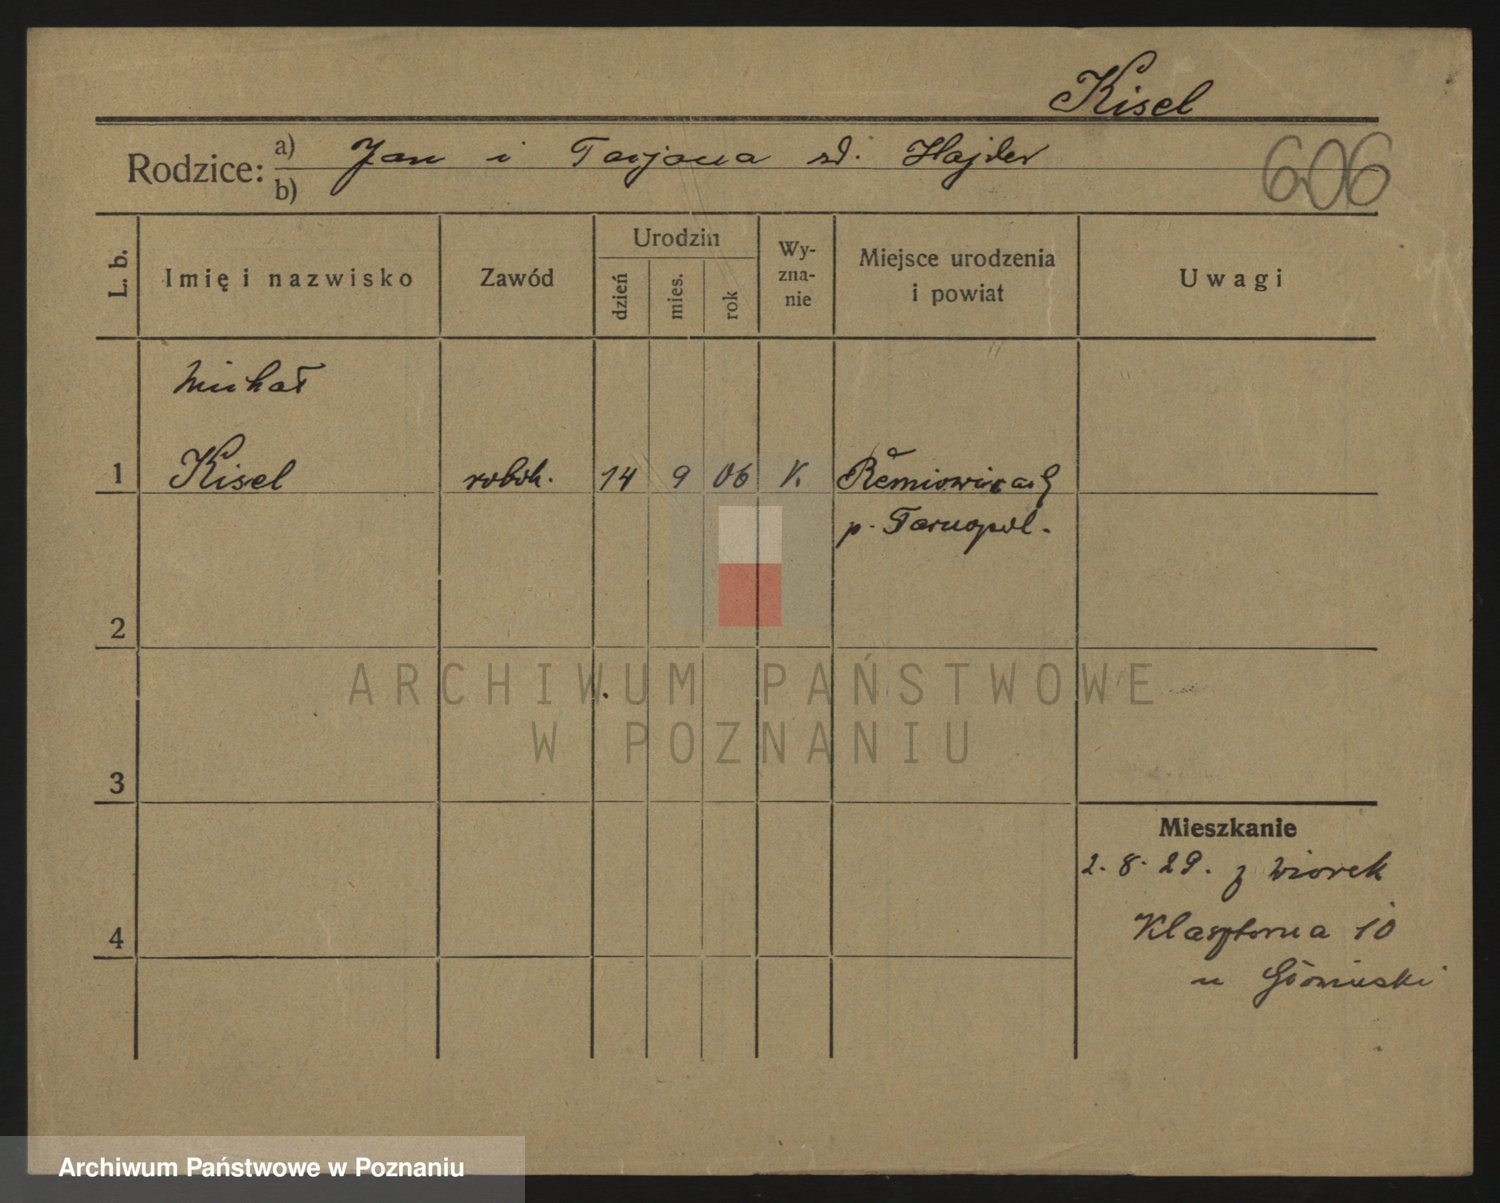 Kisel
Rodzice: a) Jan i Tacjana zd. Hajder
b)
606
L. b.
Imię i nazwisko
Zawód
Urodzin
dzień
mies.
rok
Wy-
zna-
nie
Miejsce urodzenia
i powiat
Uwagi
Michał
1 Kisel robotn. 14 9 06 K.
p. Tarnopol.
2
3
4
Mieszkanie
2. 8. 29. z Wiorek
Klasztorna 10
u
ARCHIWUM PAŃSTWOWE
W POZNANIU
Archiwum Państwowe w Poznaniu